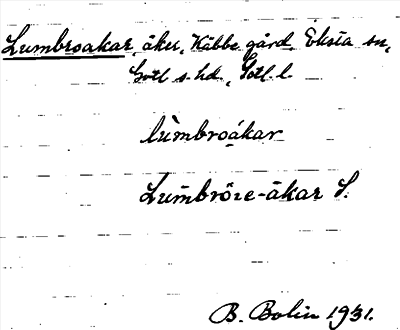 Lumbroakar, åker, Käbbe gård, Eksta sn,
Gotl s. hd., Gotl. l.
lùmbroákar
Lumbröie-åkar S.
B. Bolin 1931.